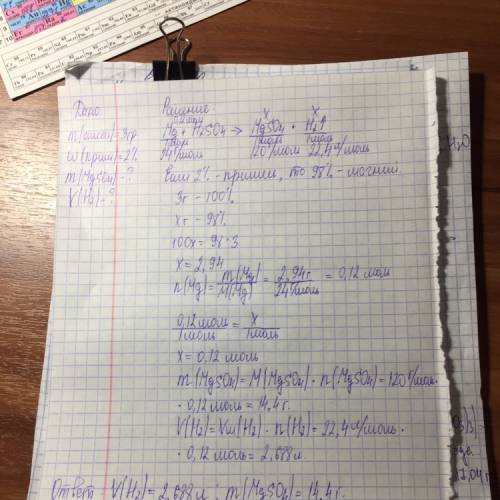 Дано: Решение:
m(смеси)=3гр. Mg + H₂SO₄ → MgSO₄ + H₂↑
1моль 1моль 1моль
ω(прим)=2% 24г/моль 120г/моль 22,4л/моль
m(MgSO₄)-? Если 2% - примеси, то 98% - магний.
V(H₂)-? 3г - 100%
xг - 98%
100x = 98·3
x = 2,94
n(Mg) = m(Mg)/M(Mg) = 2,94г/24г/моль = 0,12 моль
0,12моль/1моль = x/1моль
x = 0,12 моль
m(MgSO₄) = M(MgSO₄) · n(MgSO₄) = 120г/моль·
· 0,12 моль = 14,4г.
V(H₂) = Vm(H₂) · n(H₂) = 22,4л/моль ·
· 0,12 моль = 2,688л
Ответ: V(H₂) = 2,688л, m(MgSO₄) = 14,4г.